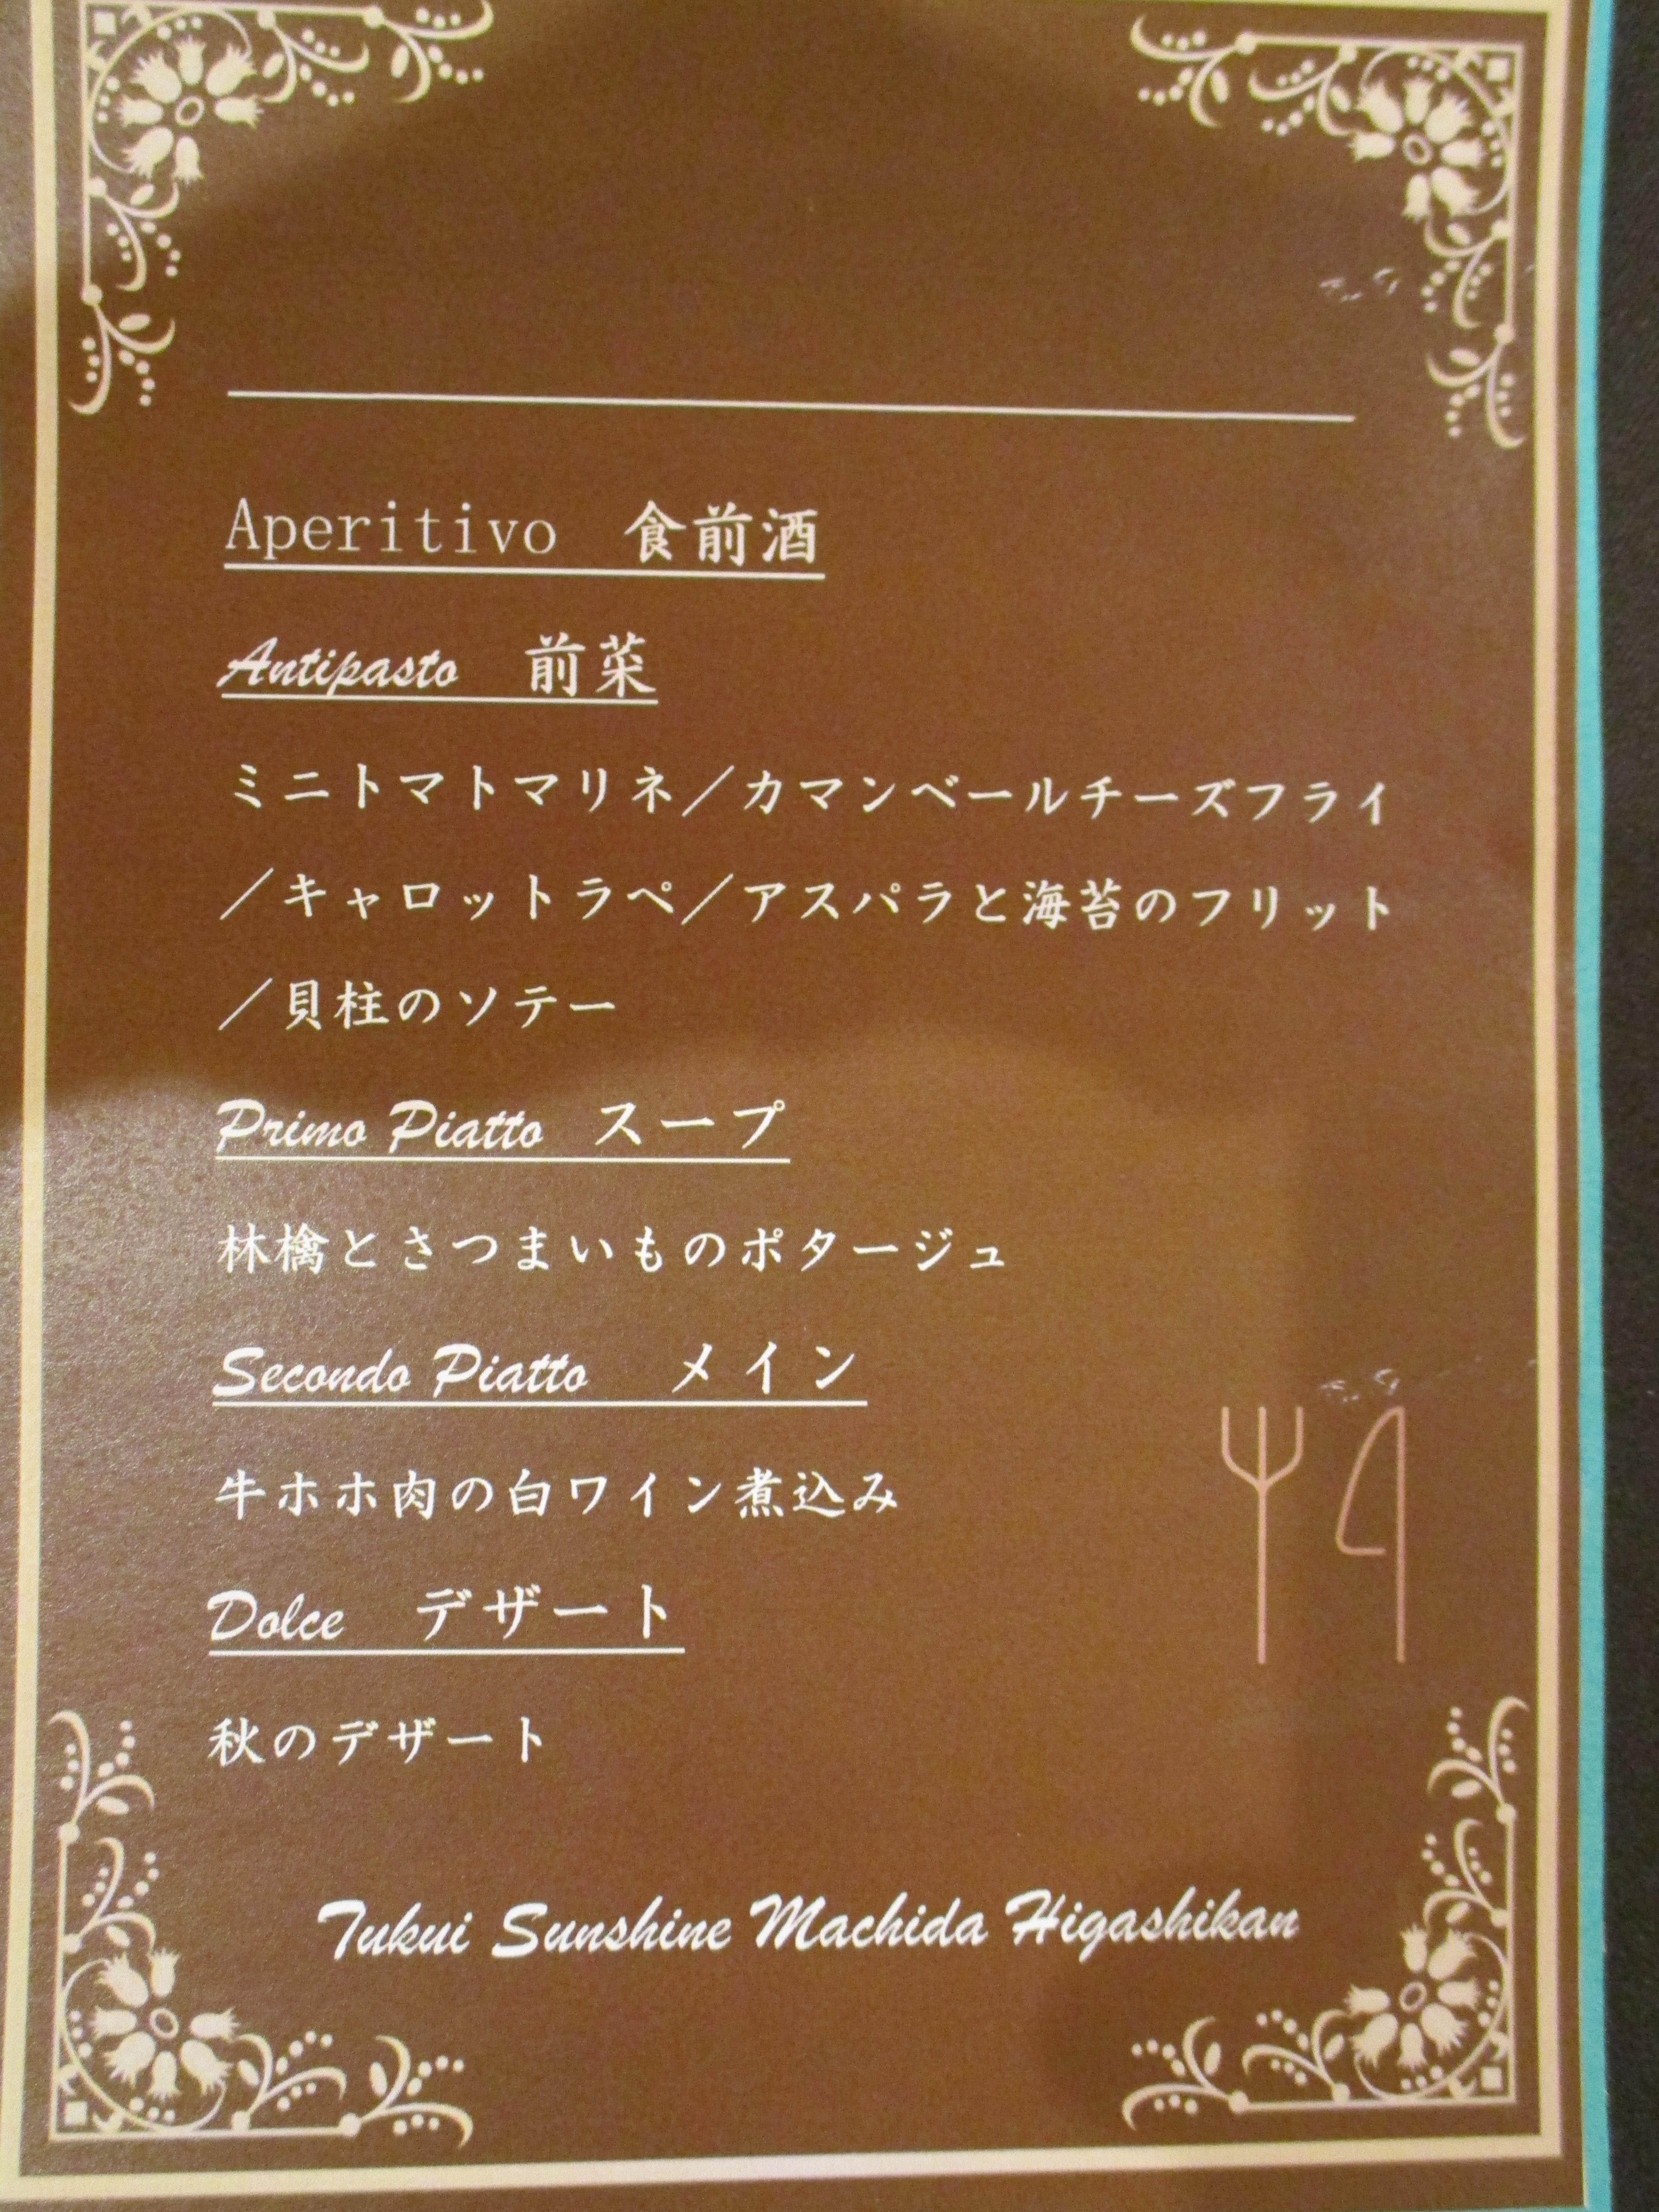 Aperitivo　食前酒
Antipasto　前菜
ミニトマトマリネ／カマンベールチーズフライ
／キャロットラペ／アスパラと海苔のフリット
／貝柱のソテー
Primo Piatto　スープ
林檎とさつまいものポタージュ
Secondo Piatto　メイン
牛ホホ肉の白ワイン煮込み
Dolce　デザート
秋のデザート
Tukui Sunshine Machida Higashikan